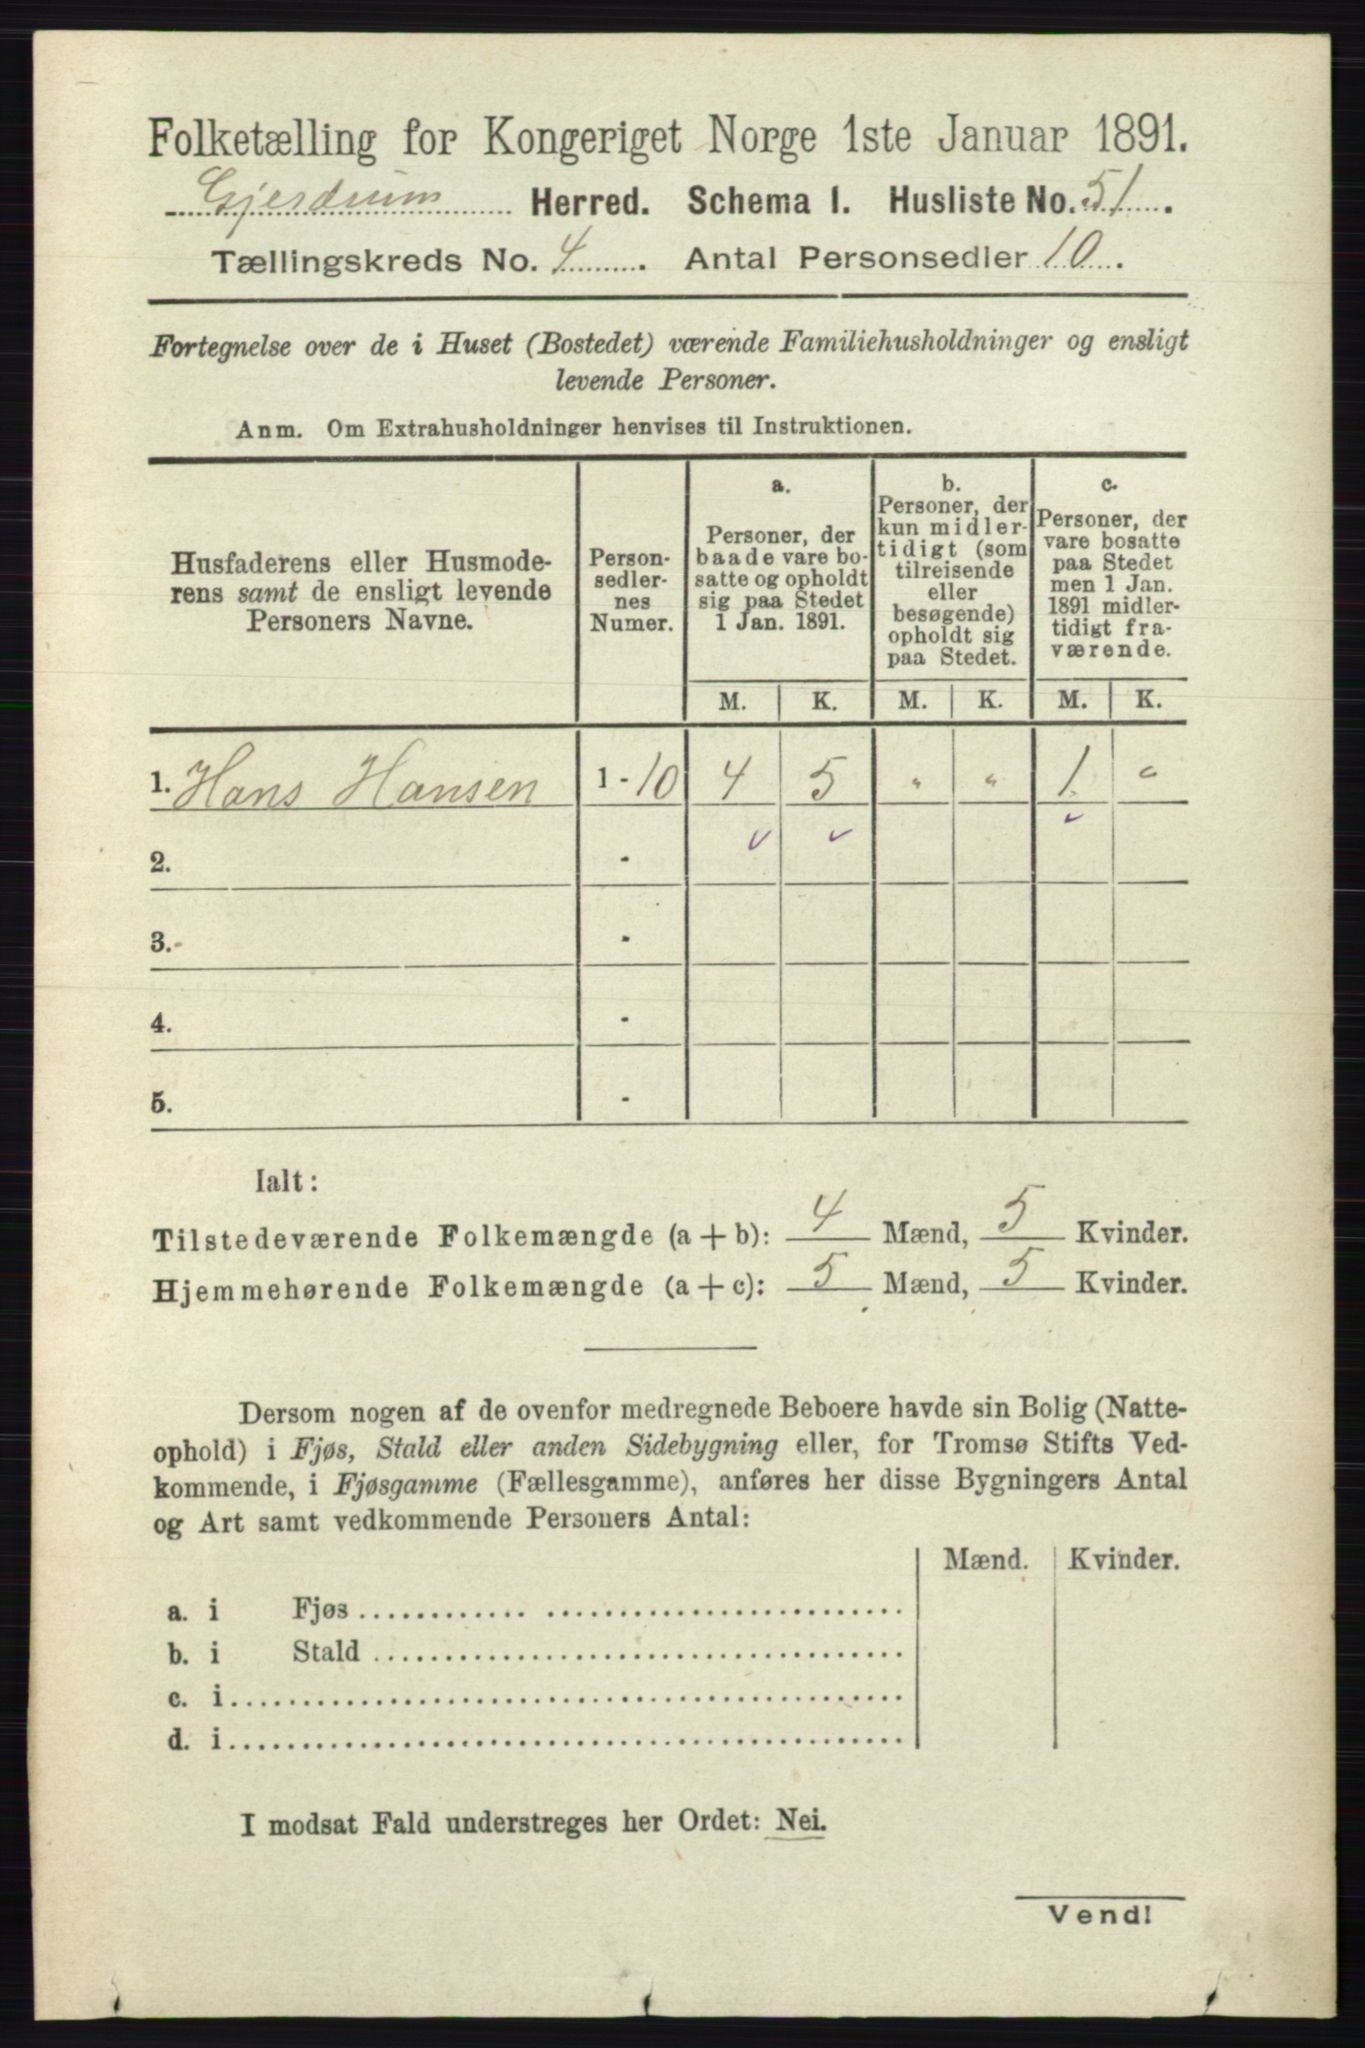 Folketælling for Kongeriget Norge 1ste Januar 1891.
Gjerdrum Herred. Schema 1. Husliste No. 51.
Tællingskreds No. 4. Antal Personsedler 10.
Fortegnelse over de i Huset (Bostedet) værende Familiehusholdninger og ensligt
levende Personer.
Anm. Om Extrahusholdninger henvises til Instruktionen.
Husfaderens eller Husmode-
rens samt de ensligt levende
Personers Navne.
Person-
sedler-
nes
Numer.
a.
Personer, der
baade vare bo-
satte og opholdt
sig paa Stedet
1 Jan. 1891.
b.
Personer, der
kun midler-
tidigt (som
tilreisende
eller
besøgende)
opholdt sig
paa Stedet.
c.
Personer, der
vare bosatte
paa Stedet
men 1 Jan.
1891 midler-
tidigt fra-
værende.
M. K. M. K. M. K.
1. Hans Hansen 1 - 10 4 5 " " 1 "
2. -
3. -
4. -
5. -
Ialt:
Tilstedeværende Folkemængde (a + b): 4 Mænd, 5 Kvinder.
Hjemmehørende Folkemængde (a + c): 5 Mænd, 5 Kvinder.
Dersom nogen af de ovenfor medregnede Beboere havde sin Bolig (Natte-
ophold) i Fjøs, Stald eller anden Sidebygning eller, for Tromsø Stifts Ved-
kommende, i Fjøsgamme (Fællesgamme), anføres her disse Bygningers Antal
og Art samt vedkommende Personers Antal:
Mænd. Kvinder.
a. i Fjøs
b. i Stald
c. i
d. i
I modsat Fald understreges her Ordet: Nei.
Vend!